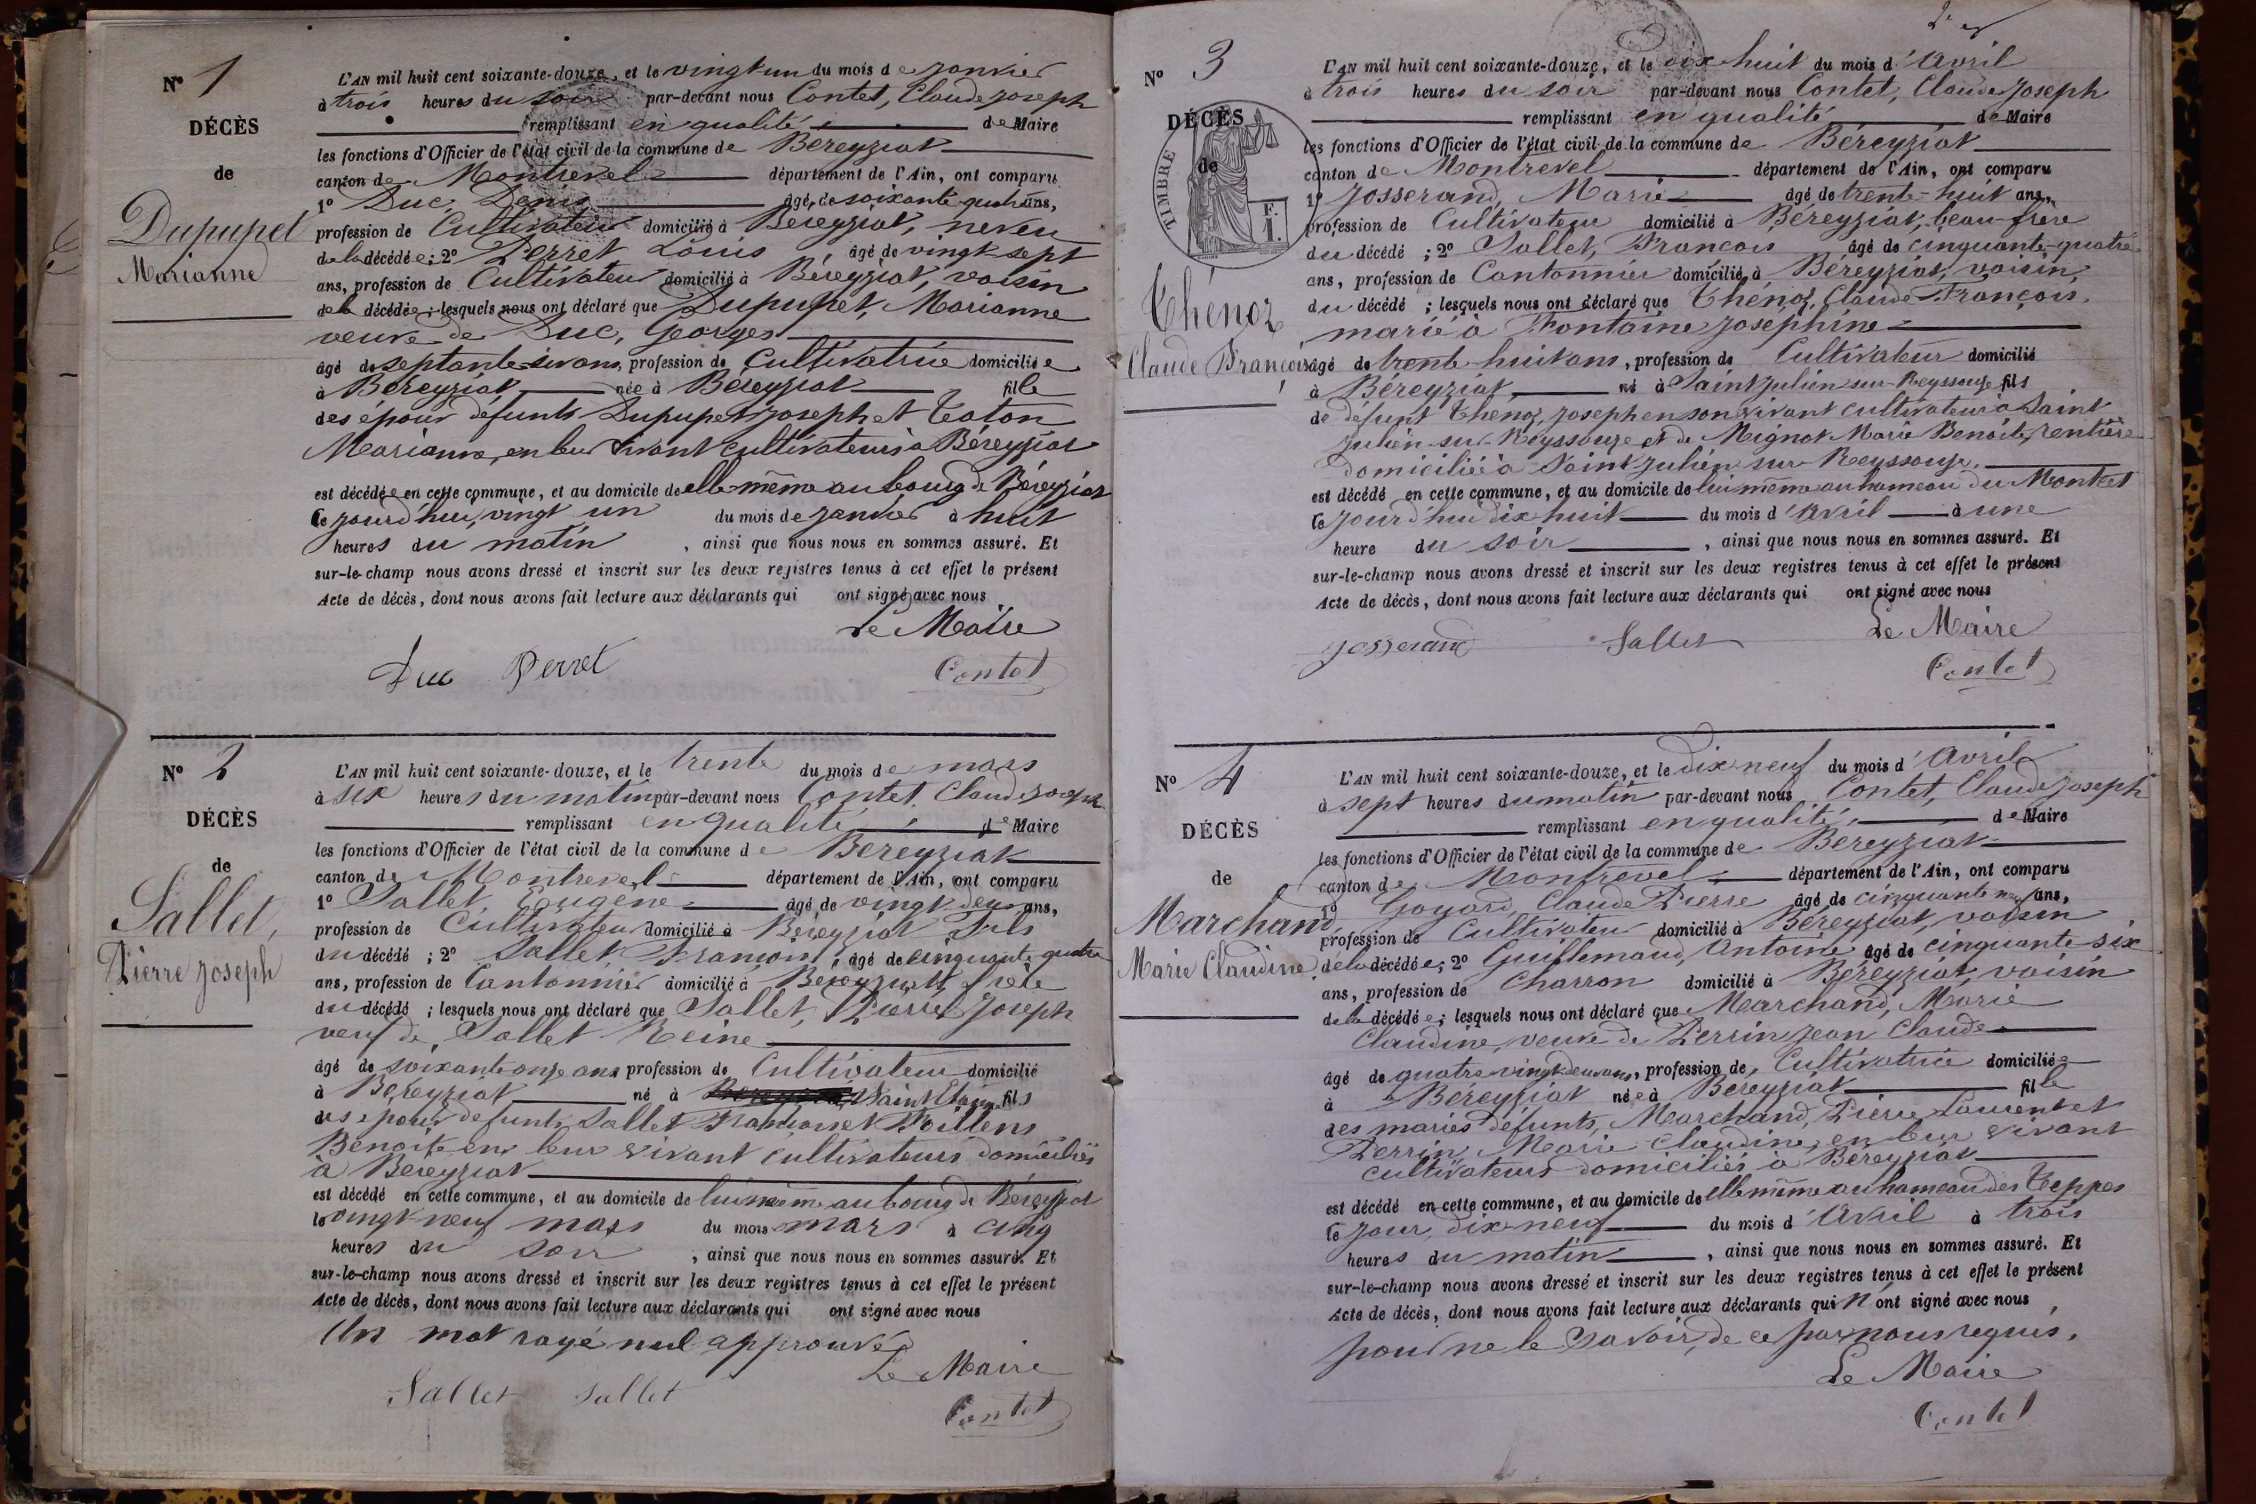 N° 1
DÉCÈS
de
Dupupet
Marianne
L'AN mil huit cent soixante-douze, et le vingt un du mois de janvier
à trois heures du soir par-devant nous Contet, Claude Joseph
remplissant en qualité de Maire
les fonctions d'Officier de l'état civil de la commune de Béreyziat
canton de Montrevel département de l'Ain, ont comparu
1° Duc, Denis âgé de soixante quatre ans,
profession de Cultivateur domicilié à Béreyziat, neveu
de la décédée ; 2° Perret Louis âgé de vingt sept
ans, profession de Cultivateur domicilié à Béreyziat, voisin
de la décédée ; lesquels nous ont déclaré que Dupupet, Marianne
veuve de Duc, Georges
âgé de septante six ans, profession de Cultivatrice domiciliée
à Béreyziat née à Béreyziat fille
des époux défunts Dupupet Joseph et Caton
Marianne, en leur vivant cultivateurs à Béreyziat
est décédée en cette commune, et au domicile de elle-même au bourg de Béreyziat
le jourd'hui, vingt un du mois de janvier à huit
heures du matin, ainsi que nous nous en sommes assuré. Et
sur-le-champ nous avons dressé et inscrit sur les deux registres tenus à cet effet le présent
Acte de décès, dont nous avons fait lecture aux déclarants qui ont signé avec nous
Le Maire
Duc Perret Contet
N° 2
DÉCÈS
de
Sallet,
Pierre Joseph
L'AN mil huit cent soixante-douze, et le trente du mois de mars
à six heures du matin par-devant nous Contet, Claude Joseph
remplissant en qualité de Maire
les fonctions d'Officier de l'état civil de la commune de Béreyziat
canton de Montrevel département de l'Ain, ont comparu
1° Sallet, Eugène âgé de vingt deux ans,
profession de Cultivateur domicilié à Béreyziat fils
du décédé ; 2° Sallet, François, âgé de cinquante quatre
ans, profession de Cantonnier domicilié à Béreyziat, frère
du décédé ; lesquels nous ont déclaré que Sallet, Pierre Joseph
veuf de Sallet Reine
âgé de soixante onze ans profession de Cultivateur domicilié
à Béreyziat né à Saint Etienne fils
des époux défunts Sallet François et Poillens
Benoite en leur vivant cultivateurs domiciliés
à Béreyziat
est décédé en cette commune, et au domicile de lui même au bourg de Béreyziat
le vingt neuf mars du mois mars à cinq
heures du soir, ainsi que nous nous en sommes assuré. Et
sur-le-champ nous avons dressé et inscrit sur les deux registres tenus à cet effet le présent
Acte de décès, dont nous avons fait lecture aux déclarants qui ont signé avec nous
Un mot rayé nul approuvé
Le Maire
Sallet Sallet Contet
N° 3
DÉCÈS
de
TIMBRE
F. I.
Thénoz
Claude François
L'AN mil huit cent soixante-douze, et le dix-huit du mois d'Avril
à trois heures du soir par-devant nous Contet, Claude Joseph
remplissant en qualité de Maire
les fonctions d'Officier de l'état civil de la commune de Béreyziat
canton de Montrevel département de l'Ain, ont comparu
1° Josserand, Marie âgé de trente-huit ans,
profession de Cultivateur domicilié à Béreyziat, beau-frère
du décédé ; 2° Sallet, François âgé de cinquante-quatre
ans, profession de Cantonnier domicilié à Béreyziat, voisin,
du décédé ; lesquels nous ont déclaré que Thénoz, Claude François,
marié à Fontaine Joséphine
âgé de trente-huit ans, profession de Cultivateur domicilié
à Béreyziat, né à Saint Julien sur Reyssouze fils
de défunt Thénoz, Joseph en son vivant cultivateur à Saint
Julien-sur-Reyssouze et de Mignot Marie Benoite, rentière
domiciliée à Saint Julien-sur-Reyssouze.
est décédé en cette commune, et au domicile de lui même au hameau du Montcet
le jourd'hui dix huit du mois d'Avril à une
heure du soir, ainsi que nous nous en sommes assuré. Et
sur-le-champ nous avons dressé et inscrit sur les deux registres tenus à cet effet le présent
Acte de décès, dont nous avons fait lecture aux déclarants qui ont signé avec nous
Le Maire
Josserand Sallet Contet
N° 4
DÉCÈS
de
Marchand
Marie Claudine
L'AN mil huit cent soixante-douze, et le dix neuf du mois d'Avril
à sept heures du matin par-devant nous Contet, Claude Joseph
remplissant en qualité de Maire
les fonctions d'Officier de l'état civil de la commune de Béreyziat
canton de Montrevel département de l'Ain, ont comparu
1° Goyard, Claude Pierre âgé de cinquante neuf ans,
profession de Cultivateur domicilié à Béreyziat, voisin
de la décédée ; 2° Guillemaud, Antoine âgé de cinquante-six
ans, profession de Charron domicilié à Béreyziat, voisin
de la décédée ; lesquels nous ont déclaré que Marchand, Marie
Claudine, veuve de Perrin Jean Claude
âgé de quatre vingt deux ans, profession de Cultivatrice domiciliée
à Béreyziat née à Béreyziat fille
des mariés défunts, Marchand, Pierre Laurent et
Perrin, Marie Claudine, en leur vivant
cultivateurs domiciliés à Béreyziat
est décédé en cette commune, et au domicile de elle même au hameau des Teppes
le jour, dix neuf du mois d'Avril à trois
heures du matin, ainsi que nous nous en sommes assuré. Et
sur-le-champ nous avons dressé et inscrit sur les deux registres tenus à cet effet le présent
Acte de décès, dont nous avons fait lecture aux déclarants qui n'ont signé avec nous,
pour ne le savoir, de ce par nous requis.
Le Maire
Contet